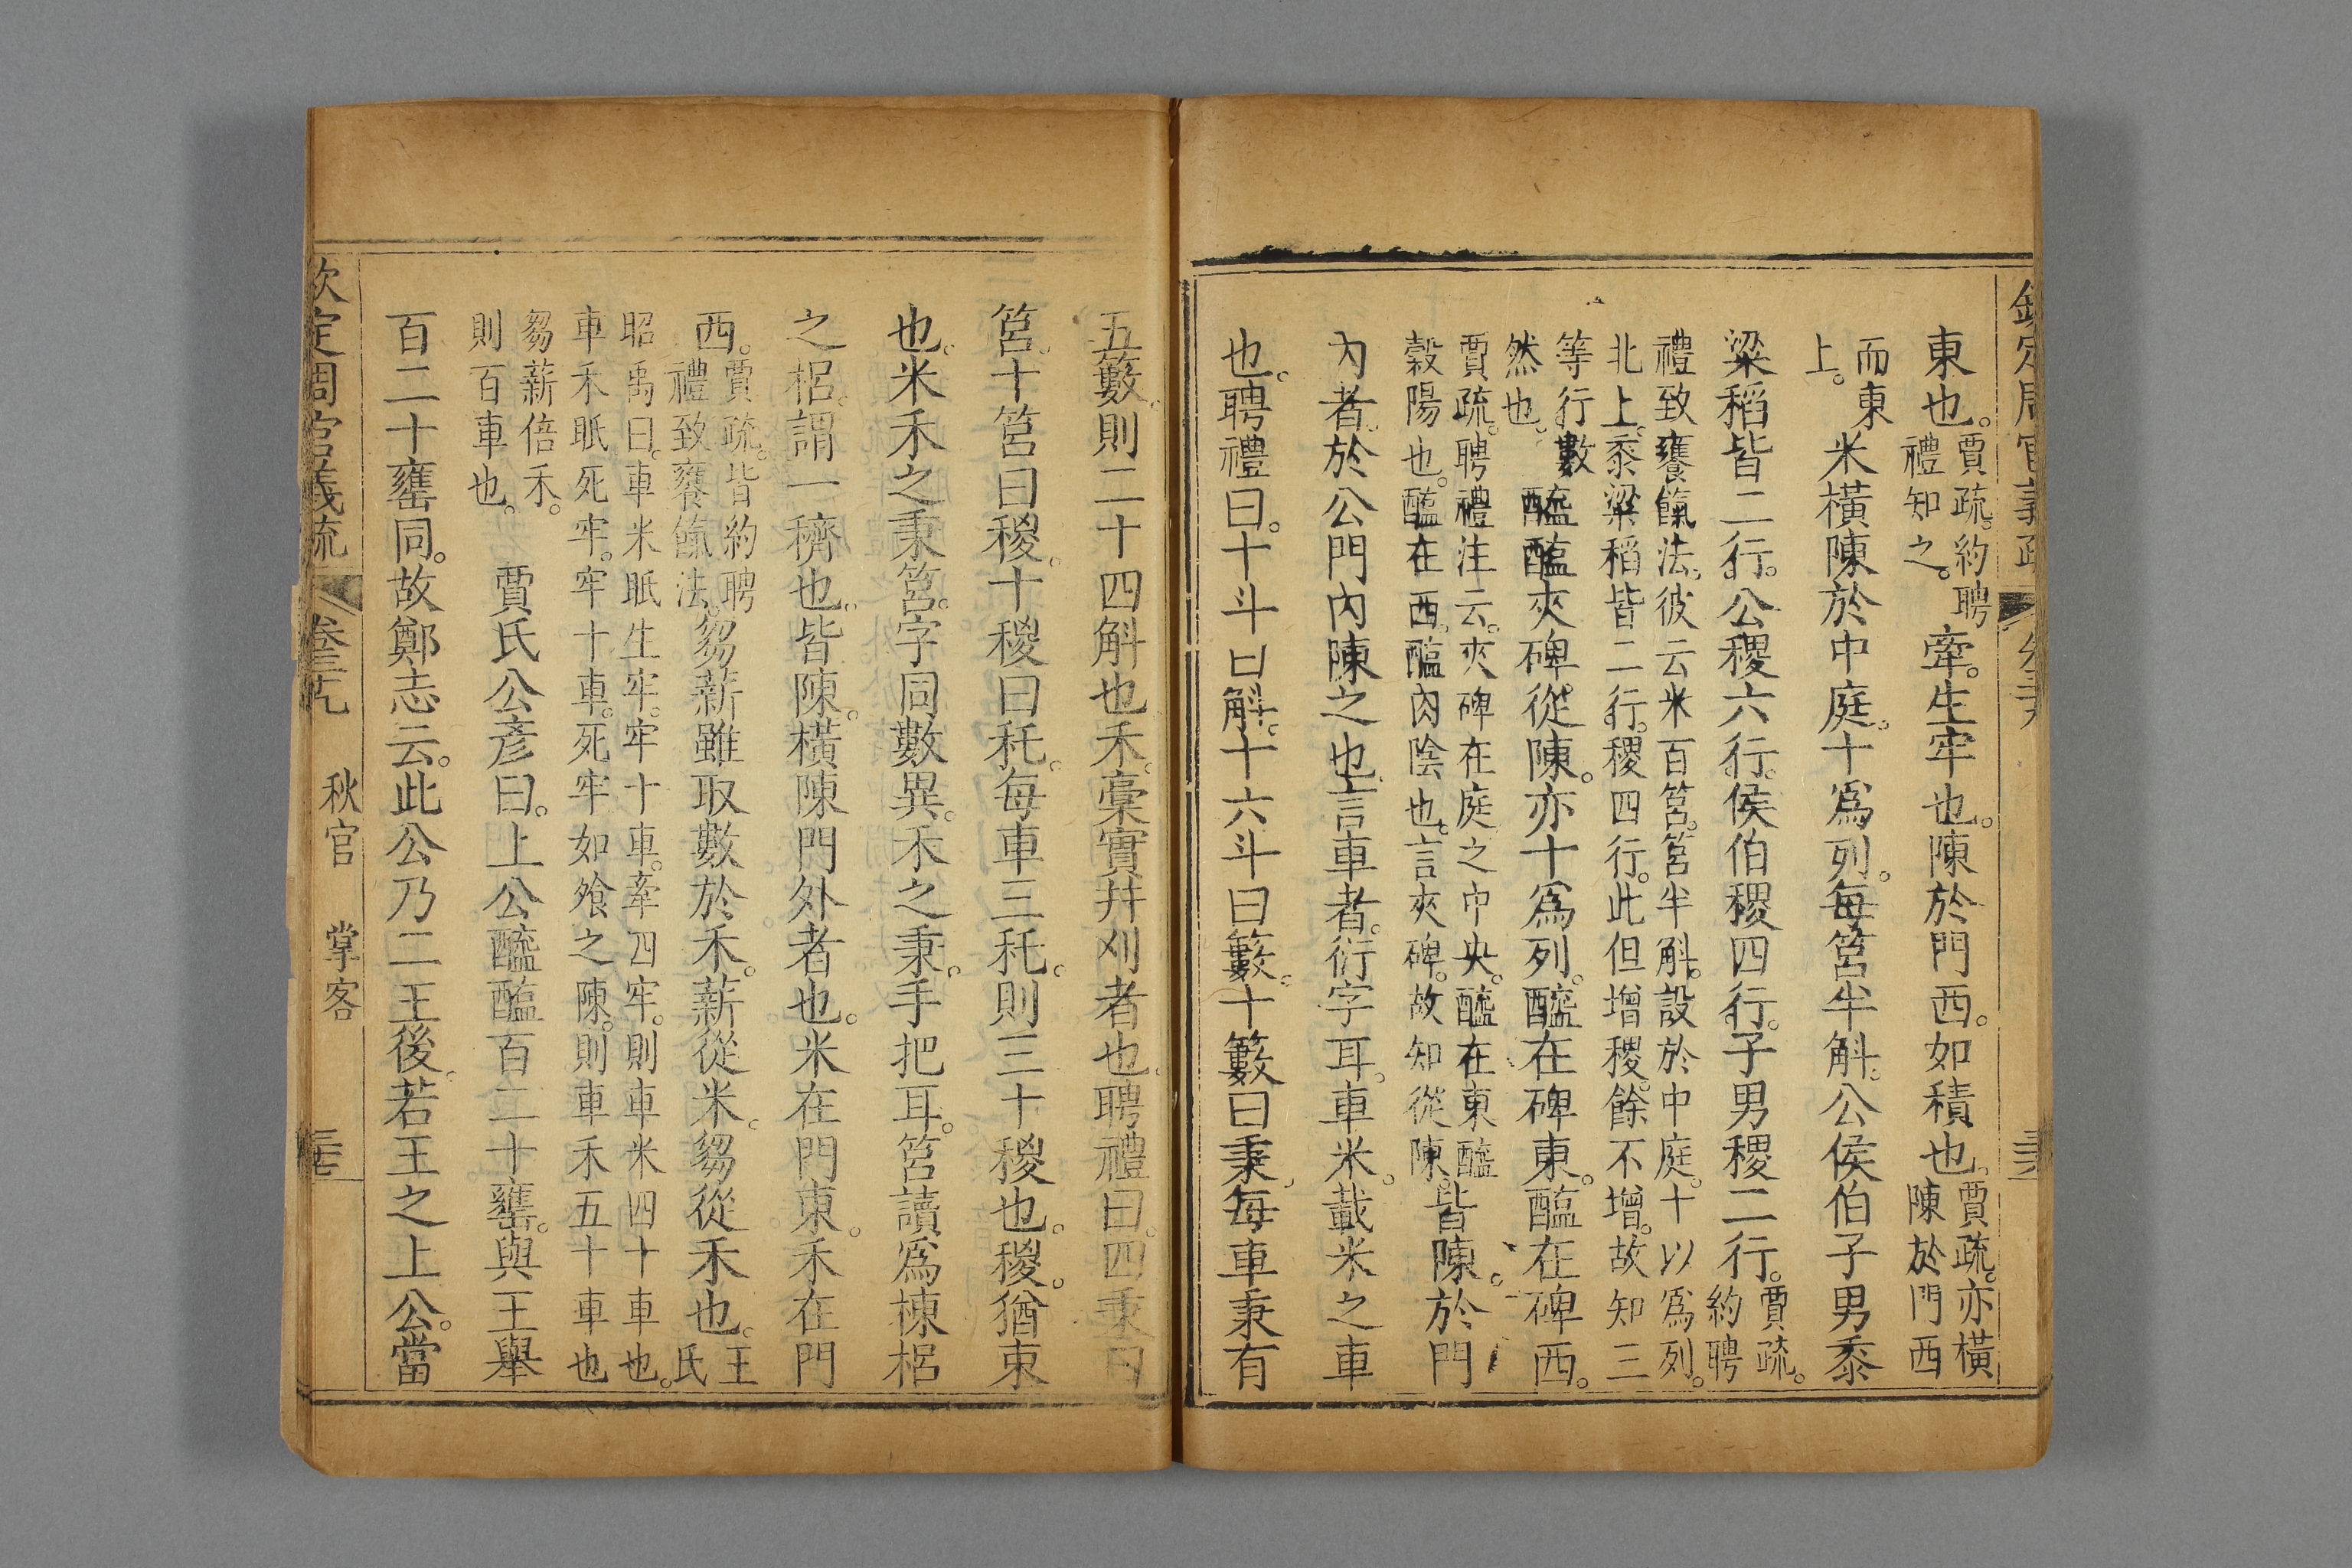 東也。賈疏。約聘禮知之。牽。生牢也。陳於門西。如積也。賈疏。亦橫陳於門西
而東上。米橫陳於中庭。十爲列。每筥半斛。公侯伯子男黍
粱稻皆二行。公稷六行。侯伯稷四行。子男稷二行。賈疏。約聘
禮致饔餼法。彼云米百筥。筥半斛。設於中庭。十以爲列。
北上。黍粱稻皆二行。稷四行。此但增稷。餘不增。故知三
等行數然也。醯醢夾碑。從陳。亦十爲列。醯在碑東。醢在碑西。
賈疏。聘禮注云。夾碑在庭之中央。醯在東。醯
穀陽也。醢在西。醢肉陰也。言夾碑。故知從陳。皆陳。於門
內者。於公門內陳之也。言車者。衍字耳。車米。載米之車
也。聘禮曰。十斗曰斛。十六斗曰籔。十籔曰秉。每車秉有
五籔。則二十四斛也。禾。稾實幷刈者也。聘禮曰。四秉曰
筥。十筥曰稯。十稯曰秅。每車三秅。則三十稯也。稯。猶束
也。米禾之秉筥。字同數異。禾之秉。手把耳。筥讀爲棟梠
之梠。謂一穧也。皆陳。橫陳門外者也。米在門東。禾在門
西。賈疏。皆約聘禮致饔餼法。芻薪雖取數於禾。薪從米。芻從禾也。王氏
昭禹曰。車米眡生牢。牢十車。牽四牢。則車米四十車也。
車禾眡死牢。牢十車。死牢如飧之陳。則車禾五十車也
芻薪倍禾。則百車也。賈氏公彥曰。上公醯醢百二十罋。與王舉
百二十罋同。故鄭志云。此公乃二王後。若王之上公。當
欽定周官義疏 卷三九 秋官 掌客